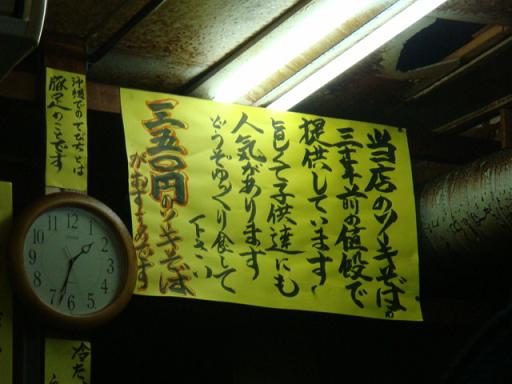 当店のソーキそば。
三年前の値段で
提供しています!
旨くて子供達にも
人気があります
どうぞゆっくり食して
下さい
三五〇円ソーキそば
がおすすめです
沖縄でのてびちとは
豚足のことです
冷た
12
1
2
3
4
5
6
7
8
9
10
11